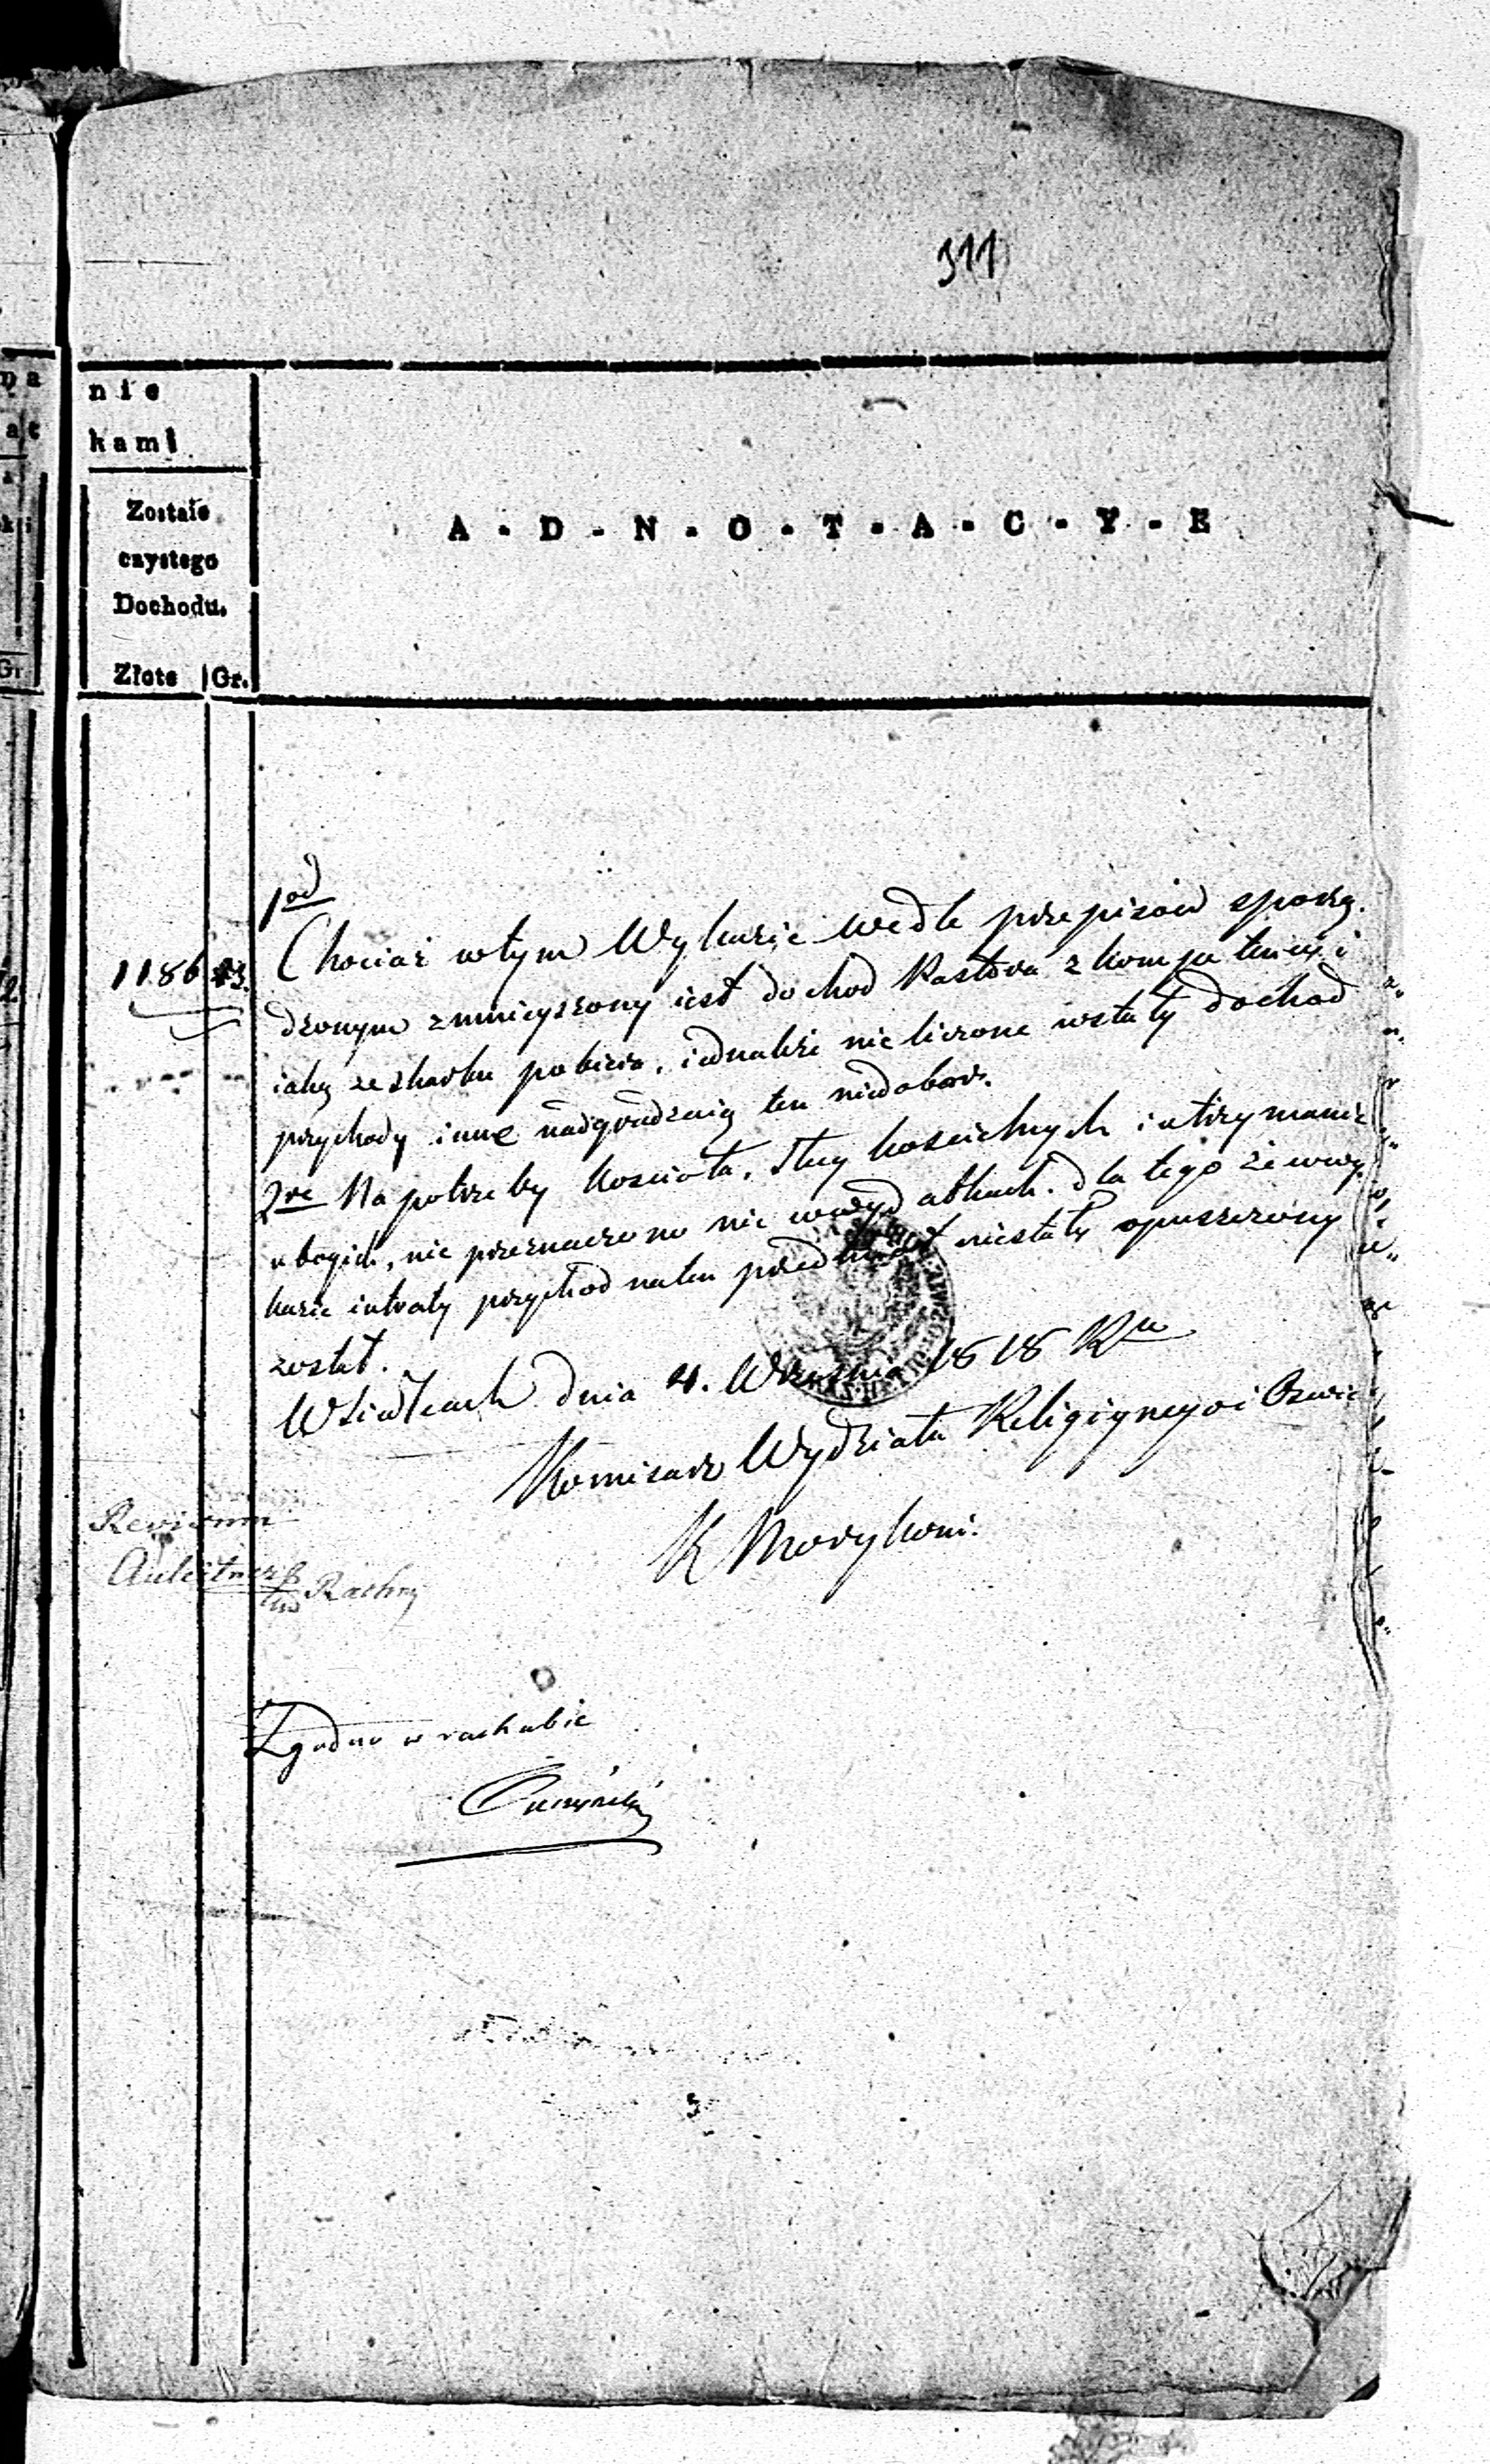 311
nie
kami
Zostaie
czystego
Dochodu.
Złote Gr.
A-D-N-O-T-A-C-Y-E
1186
1od
Chociaż w tym Wykazie wedle przepisów sporzą-
dzonym zmnieyszony iest dochod Pastora z kompetencyi
iaką ze skarbu pobiera, iednakże nie liczone w stały dochod
przychody inne nadgradzaią ten niedobor.
2re Na potrzeby kościoła, Sług kościelnych i utrzymanie
ubogich, nie przeznaczono nic w wydatkach. dla tego że w wy-
kazie intraty przychod na ten przedmiot niestały opuszczony
został.
W dnia 4. Września 1818 Ru
Komisarz Wydziału Religiynego i Oswie
K Morykoni.
Revisum
Rachny
Zgodno w rachubie